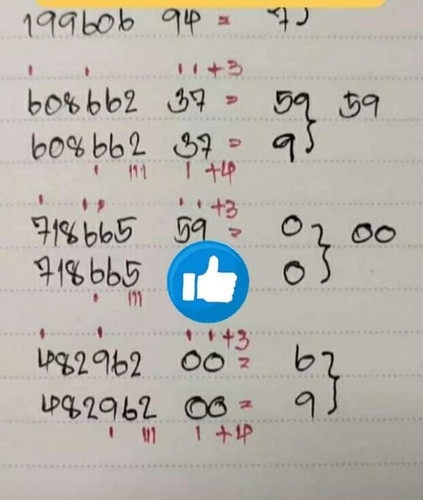 199606 94 =
+3
608662 37 = 59 59
608662 37 = 9}
+4
+3
718665 59 = 0} 00
718665 0}
+3
482962 00 = 6}
482962 00 = 9}
+4